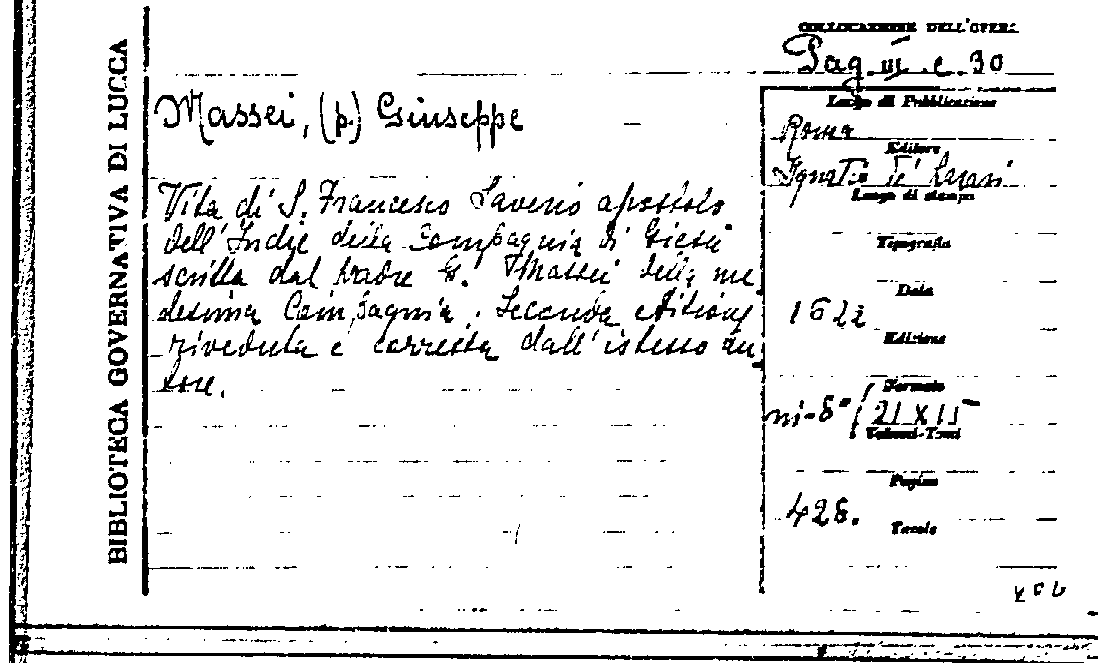 BIBLIOTECA GOVERNATIVA DI LUCCA
COLLOCAZIONE DELL'OPERA
Pag. III. c. 30
Massei, (p.) Giuseppe
Vita di S. Francesco Saverio apostolo
dell'Indie della Compagnia di Giesù
scritta dal Padre G. Massei della me
desima Compagnia. Seconda editione
riveduta e corretta dall'istesso au
tore.
Luogo di Pubblicazione
Roma
Editore
Ignatio de' Lazari
Luogo di stampa
Tipografia
Data
1622
Edizione
Formato
in-8° (21 X 15
Volumi-Tomi
Pagine
428.
Tavole